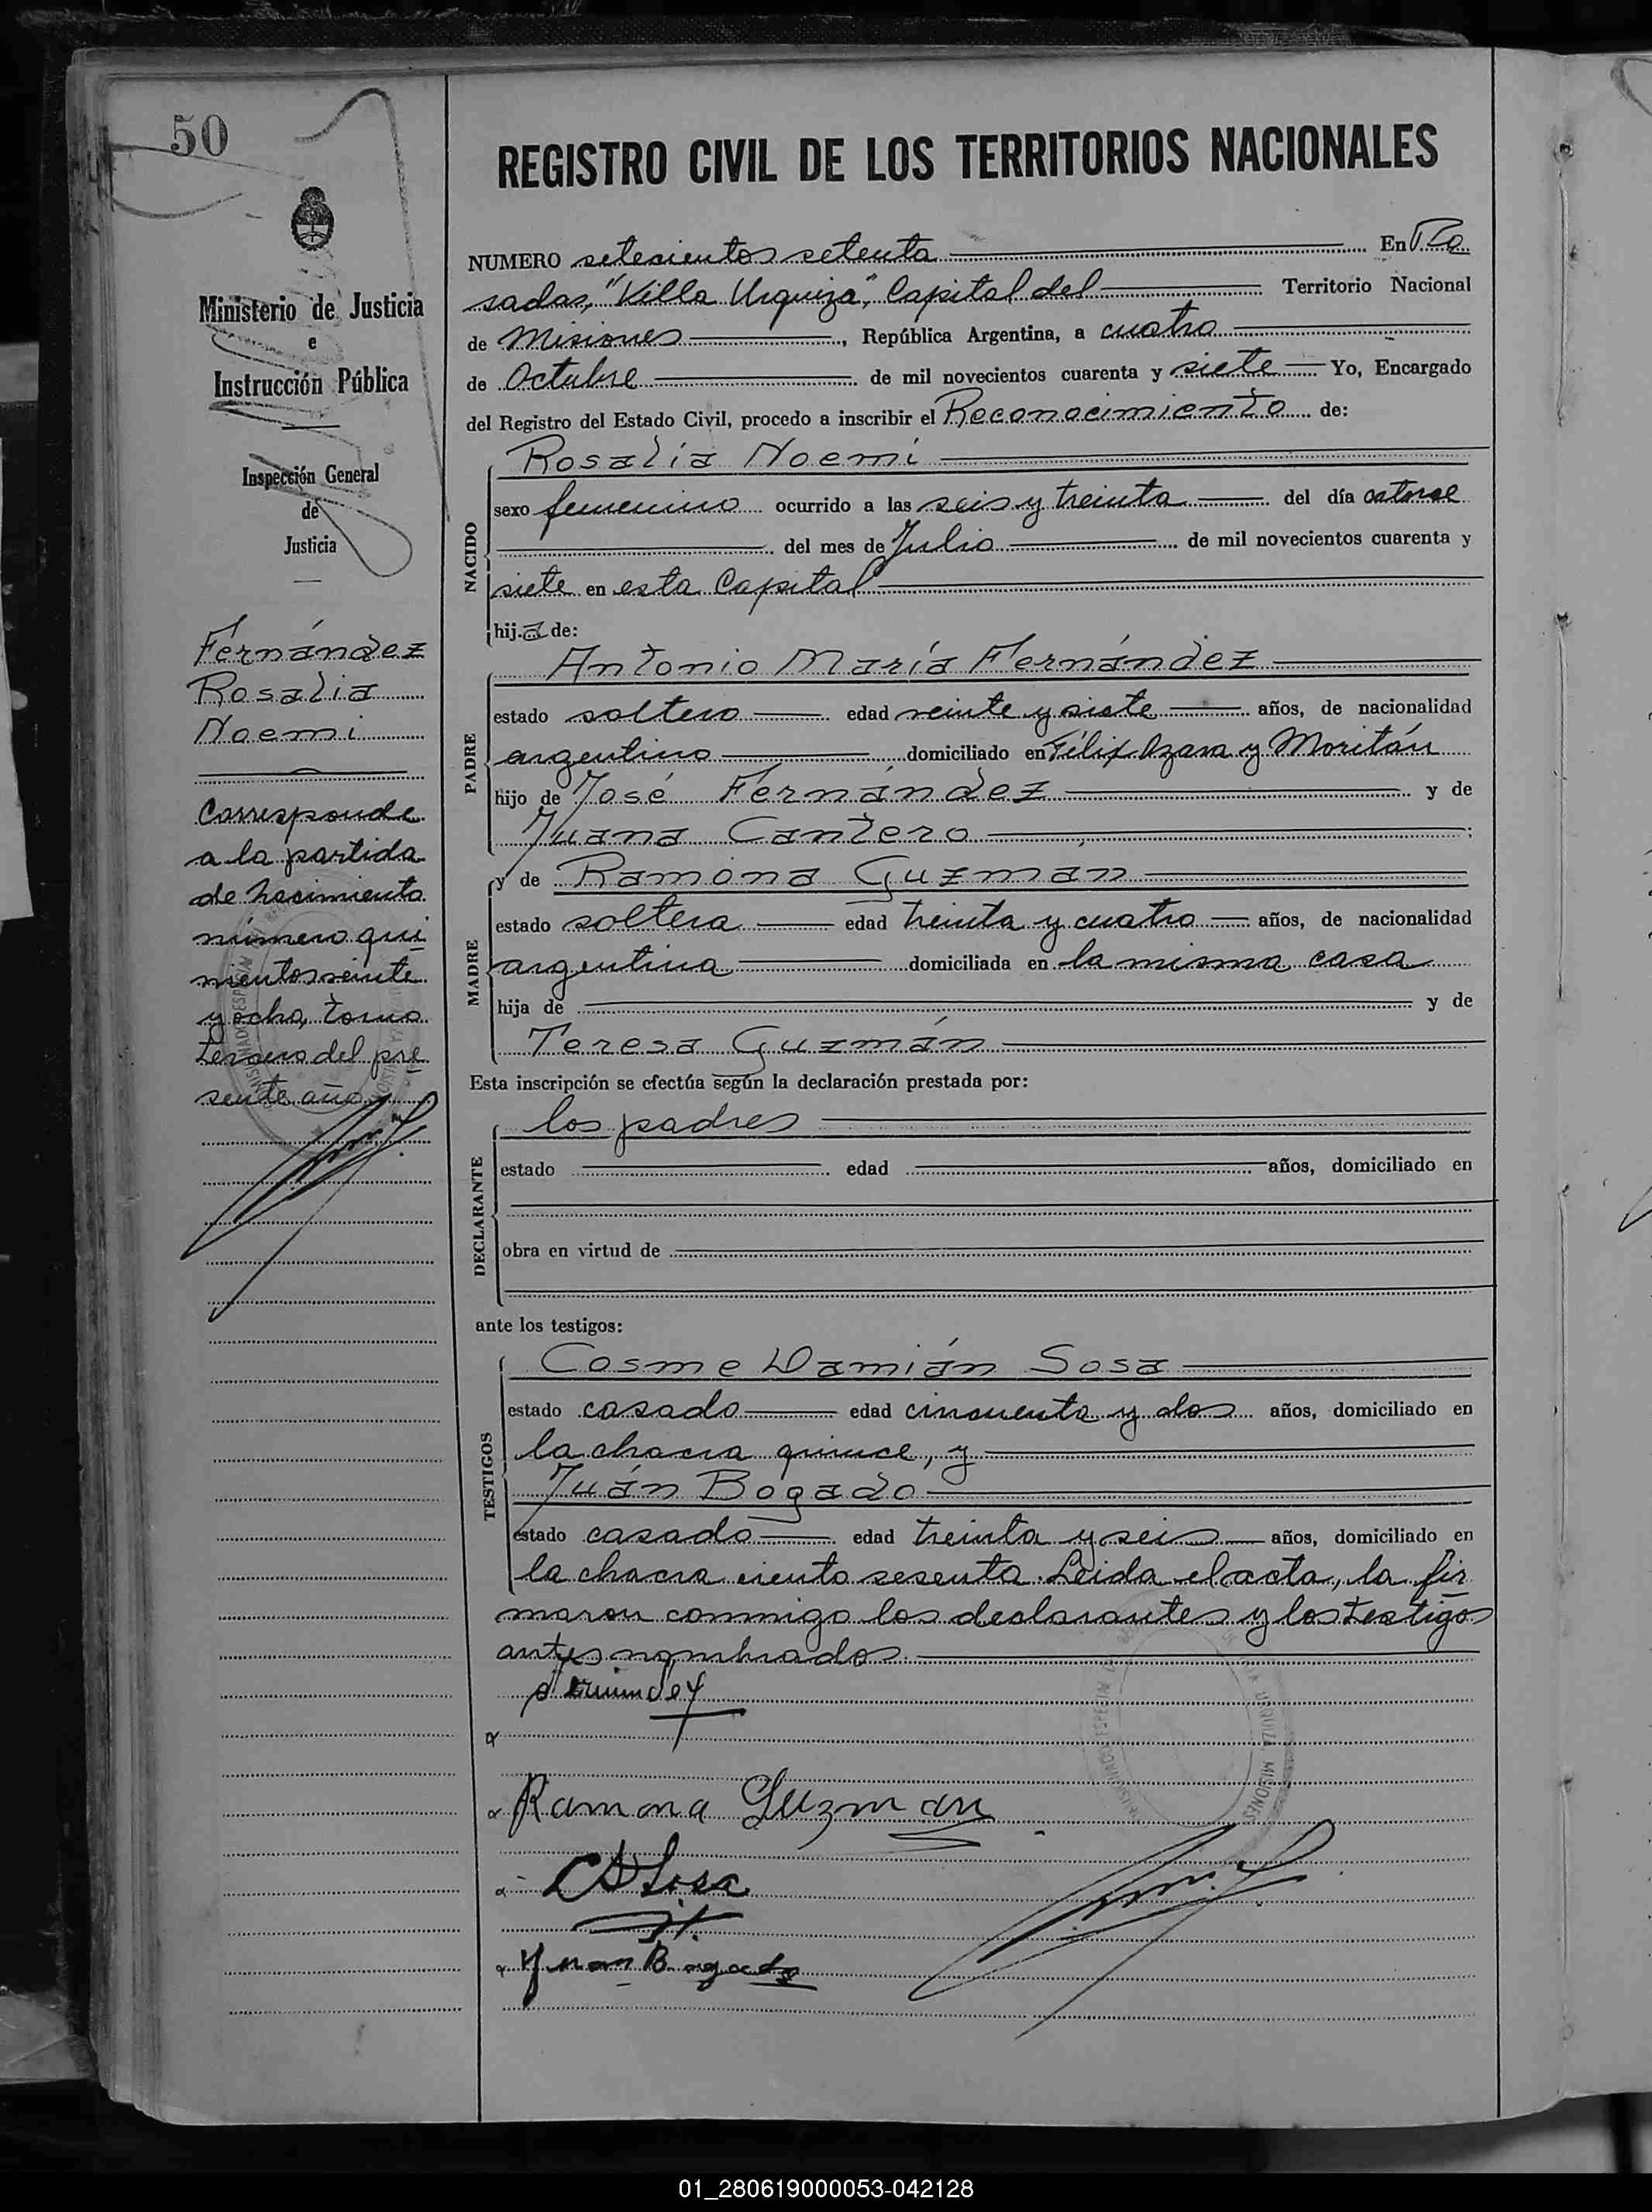 50
Ministerio de Justicia
e
Instrucción Pública
Inspección General
de
Justicia
Fernández
Rosalia
Noemi
Corresponde
a la partida
de nacimiento
número qui
nientos veinte
y ocho, tomo
tercero del pre
sente año
REGISTRO CIVIL DE LOS TERRITORIOS NACIONALES
NUMERO setecientos setenta En Po
sadas, "Villa Urquiza", Capital del Territorio Nacional
de Misiones, República Argentina, a cuatro
de Octubre de mil novecientos cuarenta y siete Yo, Encargado
del Registro del Estado Civil, procedo a inscribir el Reconocimiento de:
NACIDO
Rosalia Noemi
sexo femenino ocurrido a las seis y treinta del día catorce
del mes de Julio de mil novecientos cuarenta y
siete en esta Capital
hija de:
PADRE
Antonio María Fernández
estado soltero edad veinte y siete años, de nacionalidad
argentino domiciliado en Félix Azara y Moritán
hijo de José Fernández y de
Juana Cantero;
MADRE
y de Ramona Guzman
estado soltera edad treinta y cuatro años, de nacionalidad
argentina domiciliada en la misma casa
hija de y de
Teresa Guzmán
Esta inscripción se efectúa según la declaración prestada por:
DECLARANTE
los padres
estado edad años, domiciliado en
obra en virtud de
ante los testigos:
TESTIGOS
Cosme Damián Sosa
estado casado edad cincuenta y dos años, domiciliado en
la chacra quince, y
Juán Bogado
estado casado edad treinta y seis años, domiciliado en
la chacra ciento sesenta. Leida el acta, la fir
maron conmigo los declarantes y los testigos
antes nombrados.
Ramona Guzman
CDSosa
Juan Bogado
01_280619000053-042128